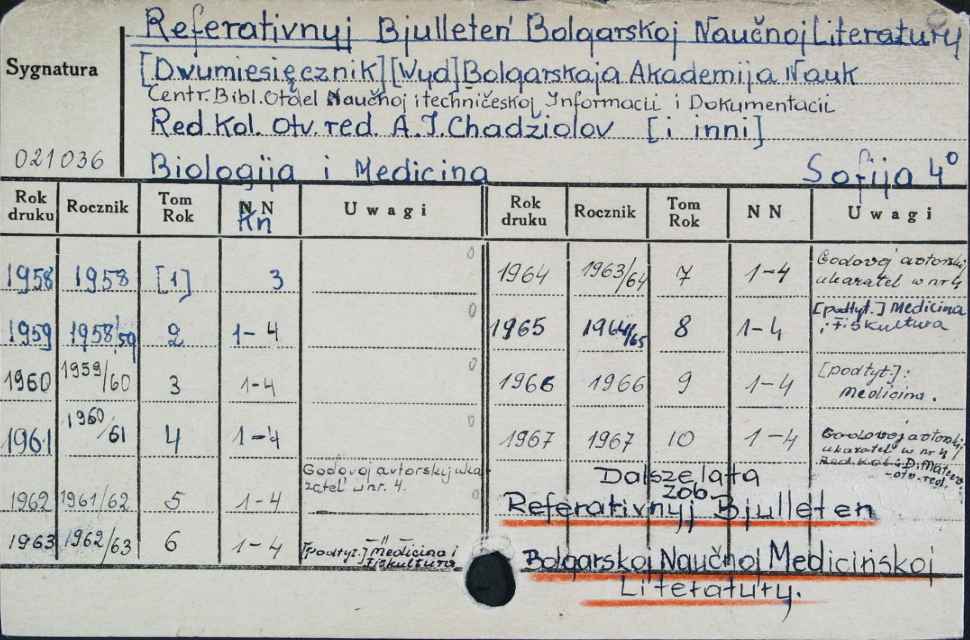 Referativnyj Bjulleteń Bolgarskoj Naučnoj Literatury
Sygnatura
[Dwumiesięcznik][Wyd] Bolgarskaja Akademija Nauk
Centr. Bibl. Otdel Naučnoj i techničeskoj Informacii i Dokumentacii
Red. Kol. otv. red. A.J. Chadziolov [i inni]
021036
Biologija i Medicina Sofija 4°
Rok druku Rocznik Tom Rok NN Kn Uwagi Rok druku Rocznik Tom Rok NN Uwagi
1958 1958 [1] 3 0
1964 1963/64 7 1-4 Godovoj avtorskij ukazatel w nr 4
1959 1958/59 2 1-4 0
1965 1964/65 8 1-4 [podtyt.] Medicina i Fiskultura
1960 1959/60 3 1-4 0
1966 1966 9 1-4 [podtyt.]: Medicina.
1961 1960/61 4 1-4 0
1967 1967 10 1-4 Godovoj avtorskij ukazatel' w nr 4
Red. Kol. D. Mateev
-otv. red.
1962 1961/62 5 1-4 Godovoj avtorskij ukazatel' w nr. 4. 0
1963 1962/63 6 1-4 -"-
[podtyt.] Medicina i Fiskultura
Dalsze lata
zob.
Referativnyj Bjulleten
Bolgarskoj Naučnoj Medicińskoj
Literatury.